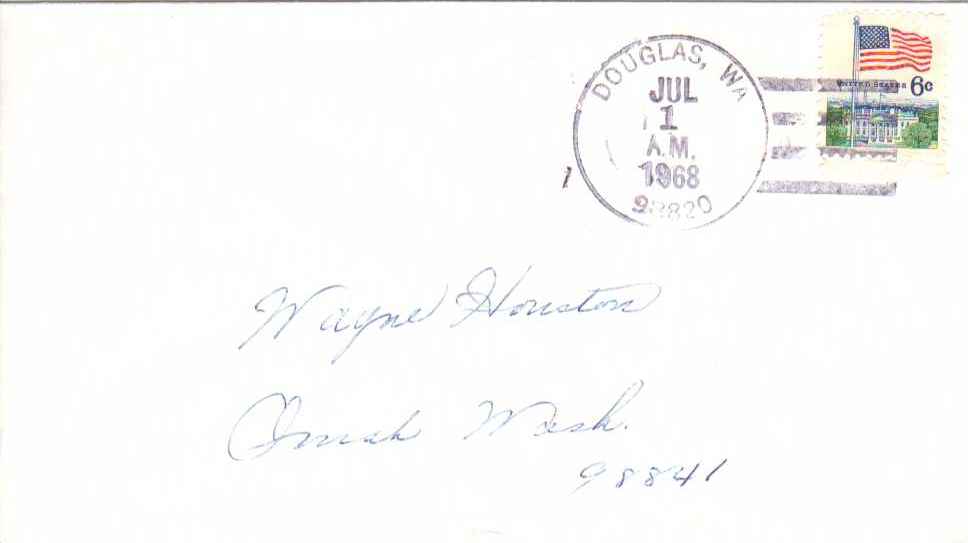 DOUGLAS, WA
JUL
1
A.M.
1968
98820
United States 6c
Wayne Houston
Omak Wash.
98841